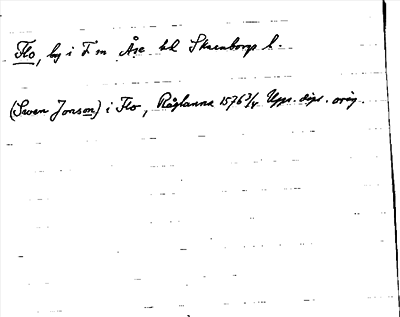 Flo, by i F m Åse hd Skaraborgs l.
(Swen Jonson) i Flo, Råglanna 1576 3/4 Upps. dipl. orig.